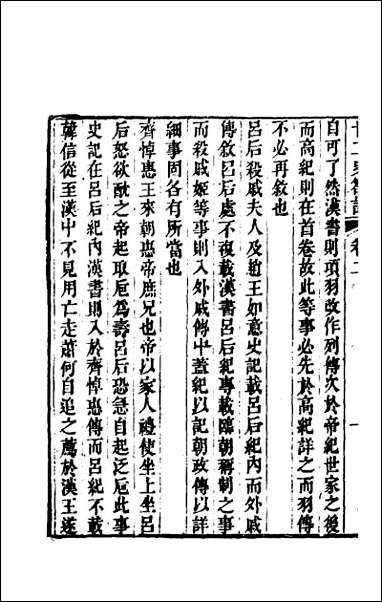 廿二史劄記 卷二 一
自可了然漢書則項羽改作列傳次於帝紀世家之後
而高紀則在首卷故此等事必先於高紀詳之而羽傳
不必再敘也
呂后殺戚夫人及趙王如意史記載呂后紀內而外戚
傳敘呂后處不復載漢書呂后紀專載臨朝稱制之事
而殺戚姬等事則入外戚傳中蓋紀以記朝政傳以詳
細事固各有所當也
齊悼惠王來朝惠帝庶兄也帝以家人禮使坐上呂
后怒欲酖之帝起取卮為壽呂后恐急自起泛卮此事
史記在呂后紀內漢書則入於齊悼惠傳而呂紀不載
韓信從至漢中不見用亡走蕭何自追之薦於漢王遂